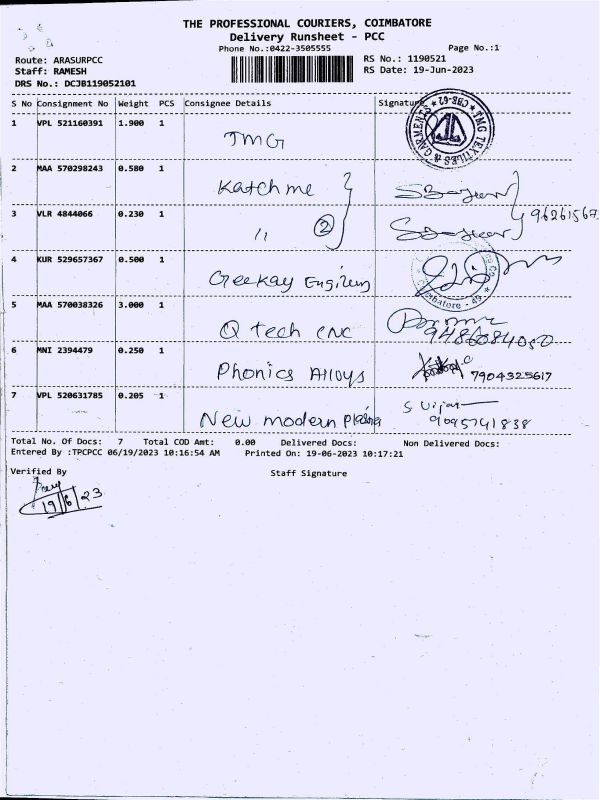 THE PROFESSIONAL COURIERS, COIMBATORE
Delivery Runsheet - PCC
Phone No.:0422-3505555 Page No.:1
Route: ARASURPCC RS No.: 1190521
Staff: RAMESH RS Date: 19-Jun-2023
DRS No.: DCJB119052101
S No Consignment No Weight PCS Consignee Details Signature
1 VPL 521160391 1.900 1 TMG TMG TEXTILES & GARMENTS CBE-62
2 MAA 570298243 0.580 1 Katch me
3 VLR 4844066 0.230 1 " 2 96261567
4 KUR 529657367 0.500 1 Geekay
5 MAA 570038326 3.000 1 Q tech cnc 9486084050
6 MNI 2394479 0.250 1 Phonics Alloys 7904325617
7 VPL 520631785 0.205 1 New modern 9095741838
Total No. Of Docs: 7 Total COD Amt: 0.00 Delivered Docs: Non Delivered Docs:
Entered By :TPCPCC 06/19/2023 10:16:54 AM Printed On: 19-06-2023 10:17:21
Verified By Staff Signature
19/6/23